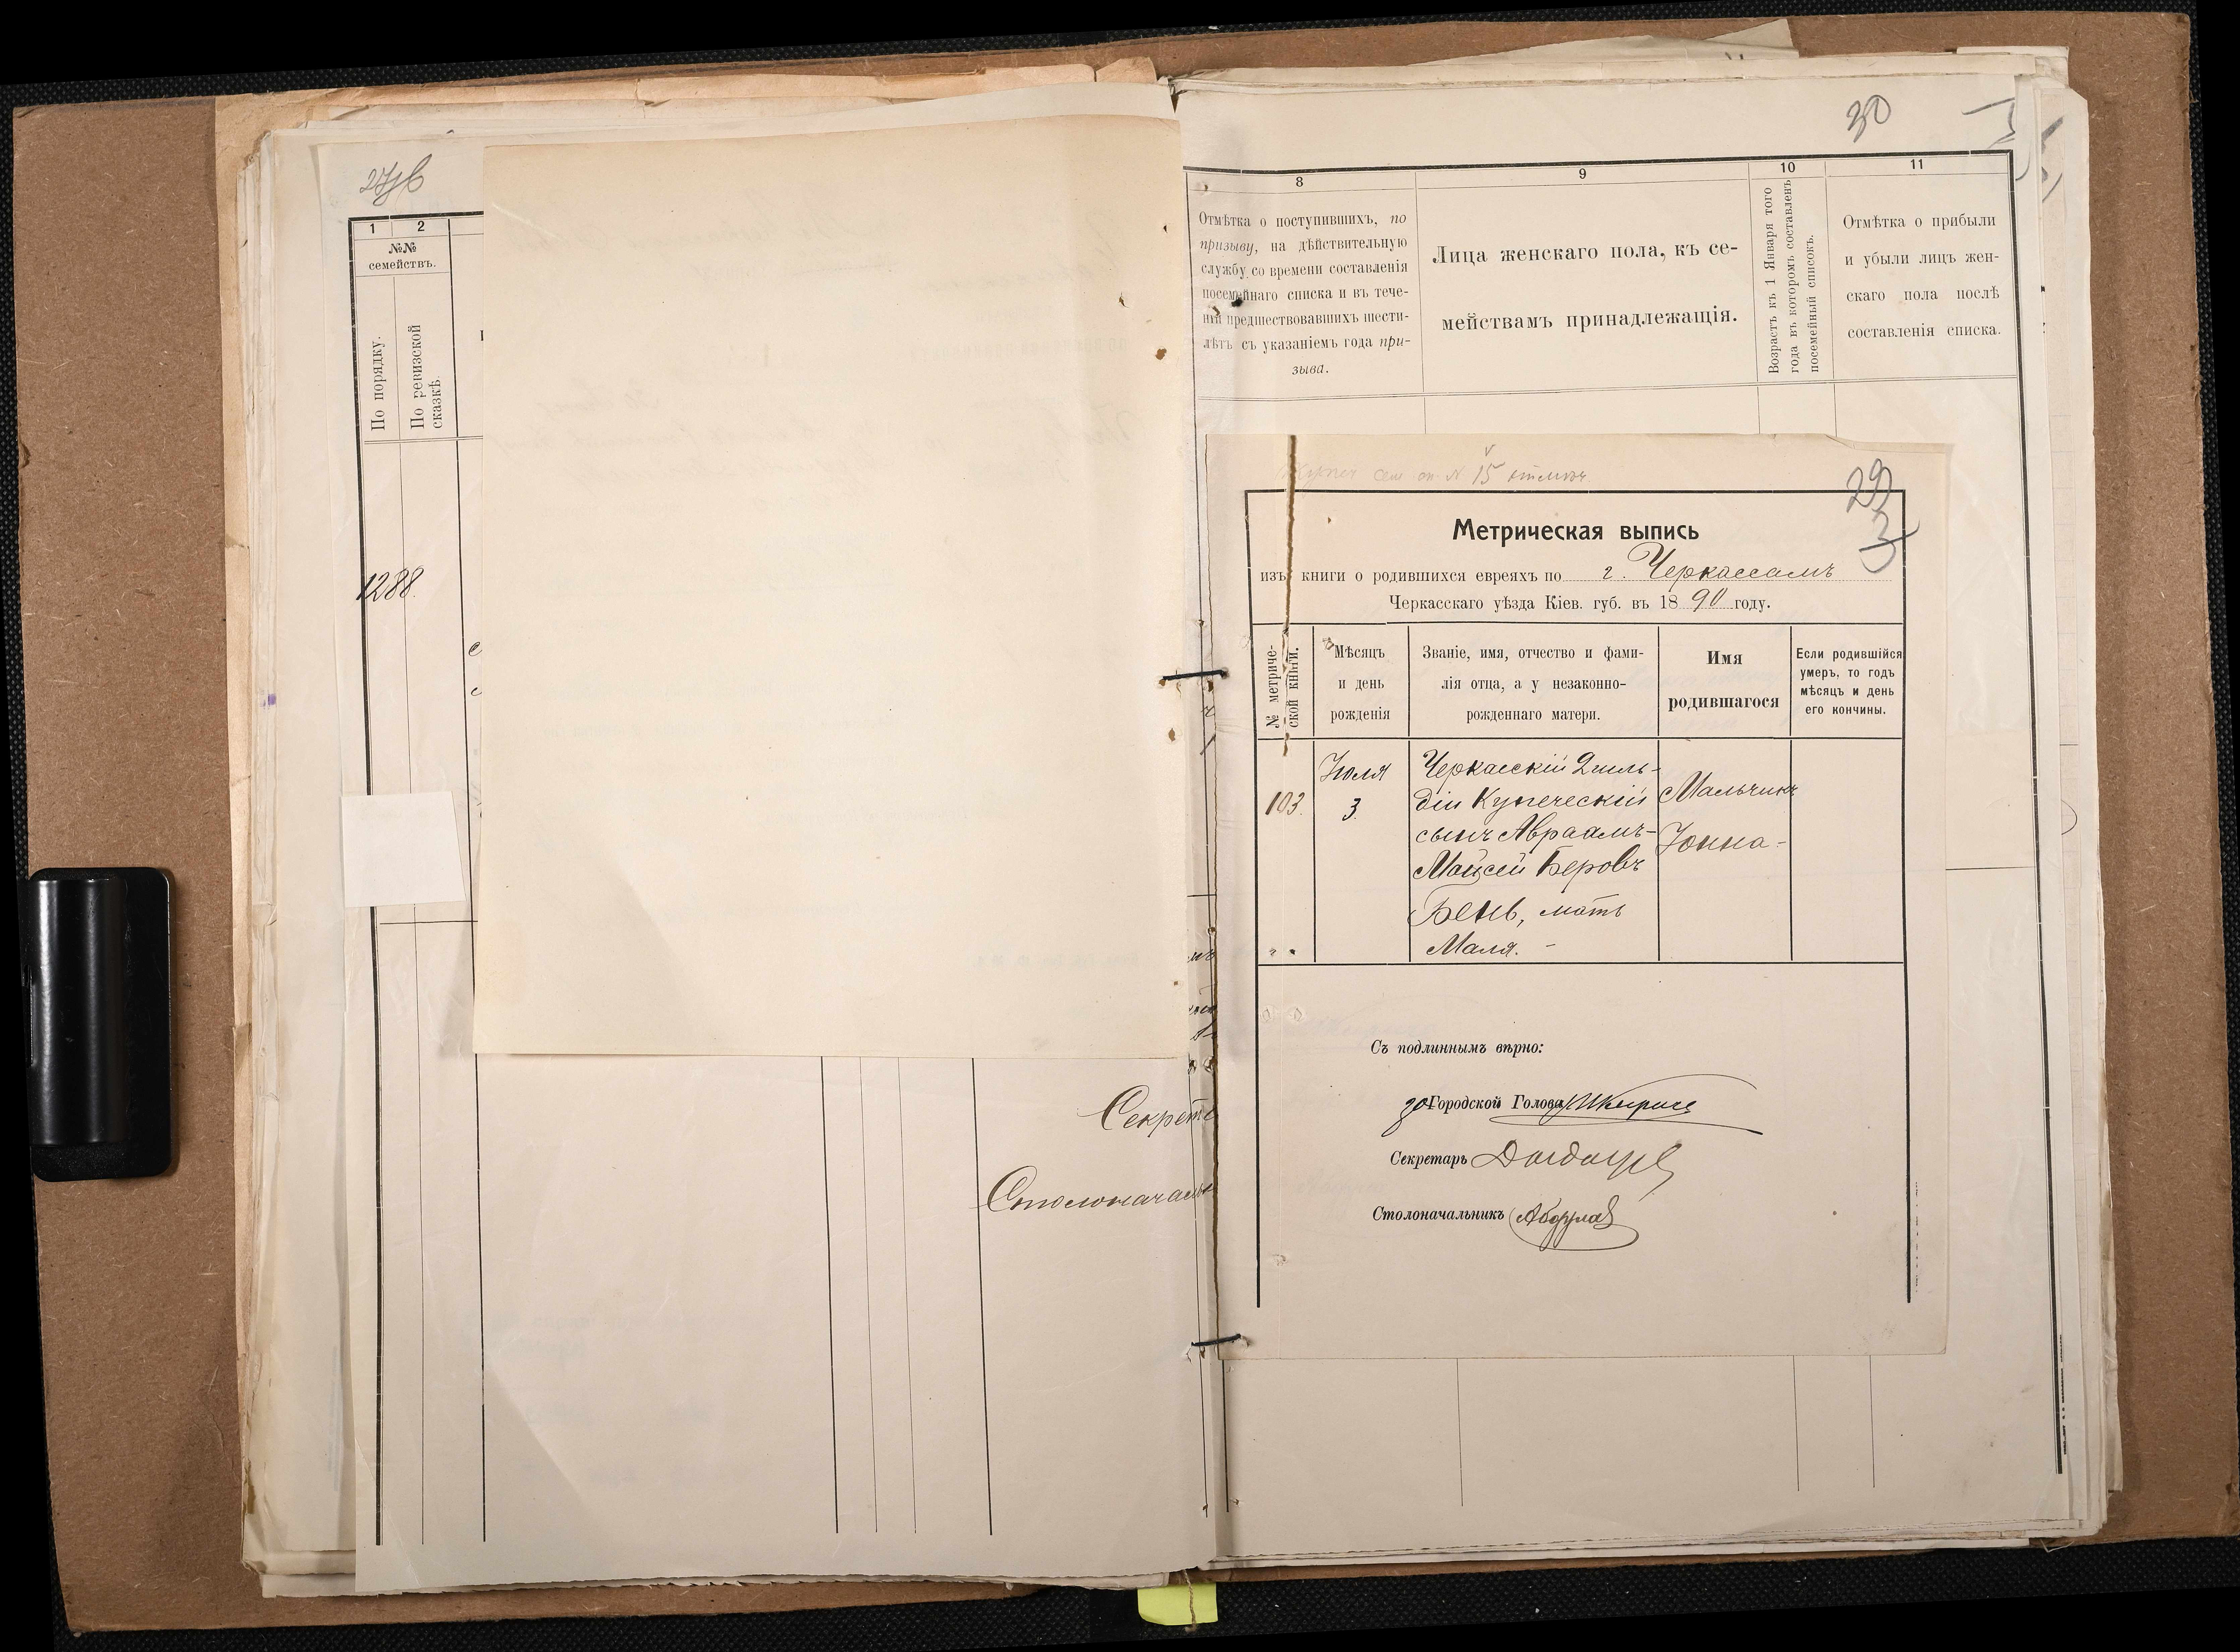 1 2
№№
семействъ.
По порядку.
По ревизской
сказкѣ.
1288.
Секрет
Столоначаль
30
8 9 10 11
Отмѣтка о поступившихъ, по
призыву, на дѣйствительную
службу со времени составленія
посемейнаго списка и въ тече-
ніи предшествовавшихъ шести-
лѣтъ съ указаніемъ года при-
зыва.
Лица женскаго пола, къ се-
мействамъ принадлежащія.
Возрастъ къ 1 Января того
года въ которомъ составленъ
посемейный списокъ.
Отмѣтка о прибыли
и убыли лицъ жен-
скаго пола послѣ
составленія списка.
№ 15
29
3
Метрическая выпись
изъ книги о родившихся евреяхъ по г. Черкассамъ
Черкасскаго уѣзда Кіев. губ. въ 1890 году.
№ метриче-
ской книги.
Мѣсяцъ
и день
рожденія
Званіе, имя, отчество и фами-
лія отца, а у незаконно-
рожденнаго матери.
Имя
родившагося
Если родившійся
умеръ, то годъ
мѣсяцъ и день
его кончины.
103.
Іюля
3.
Черкасскій 2 гиль-
діи Купеческій
сынъ Авраамъ-
Мойсей Беровъ
Бень, мать
Маля. -
Мальчикъ
Іонна-
Съ подлиннымъ вѣрно:
Городской Голова
Секретарь
Столоначальникъ